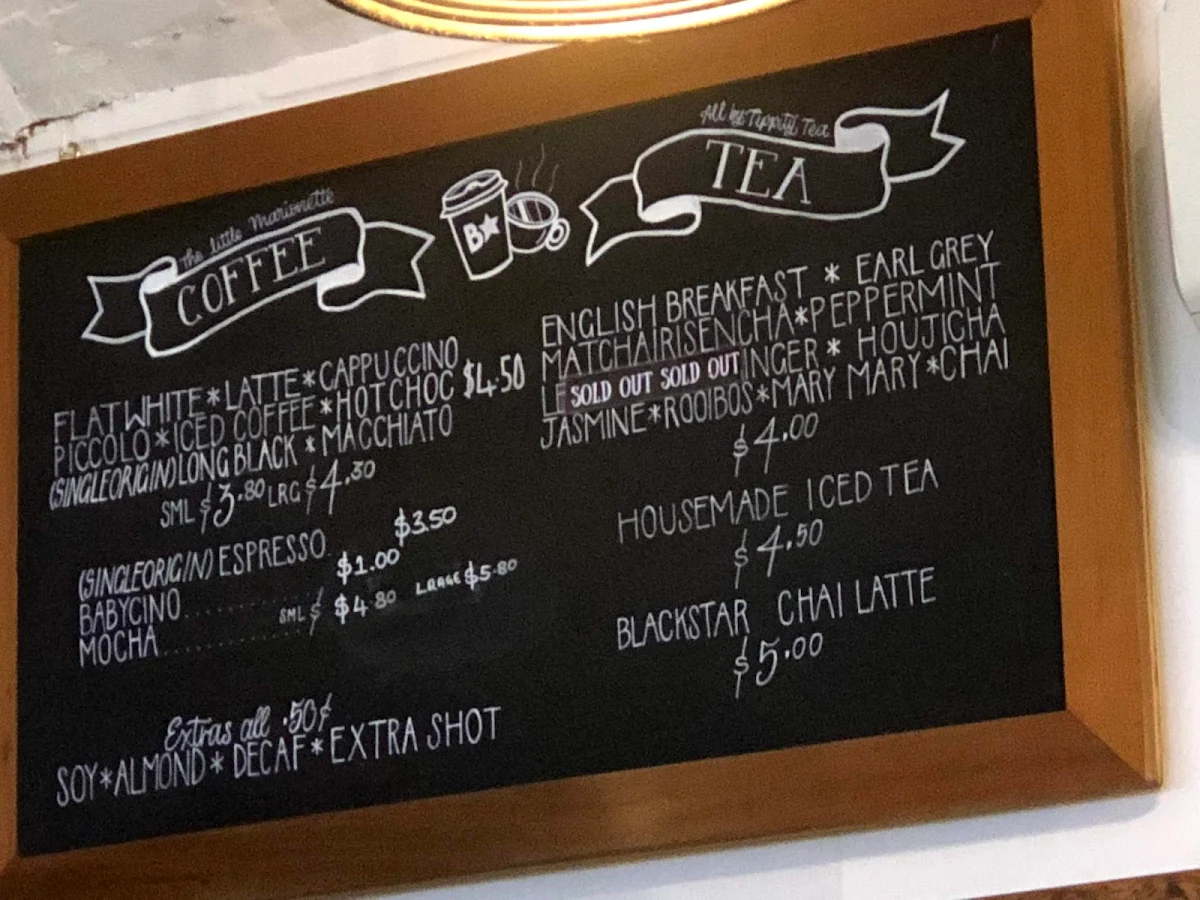 The little Marionette
COFFEE
FLAT WHITE * LATTE * CAPPUCCINO
PICCOLO * ICED COFFEE * HOT CHOC $4.50
(SINGLE ORIGIN) LONG BLACK * MACCHIATO
SML $3.80 LRG $4.30
(SINGLE ORIGIN) ESPRESSO $3.50
BABYCINO........ $1.00
MOCHA........ SML $ $4.80 LARGE $5.80
Extras all .50¢
SOY * ALMOND * DECAF * EXTRA SHOT
B★
All by Tippity Tea
TEA
ENGLISH BREAKFAST * EARL GREY
MATCHAIRISENCHA * PEPPERMINT
SOLD OUT SOLD OUT INGER * HOUJICHA
JASMINE * ROOIBOS * MARY MARY * CHAI
$4.00
HOUSEMADE ICED TEA
$4.50
BLACKSTAR CHAI LATTE
$5.00